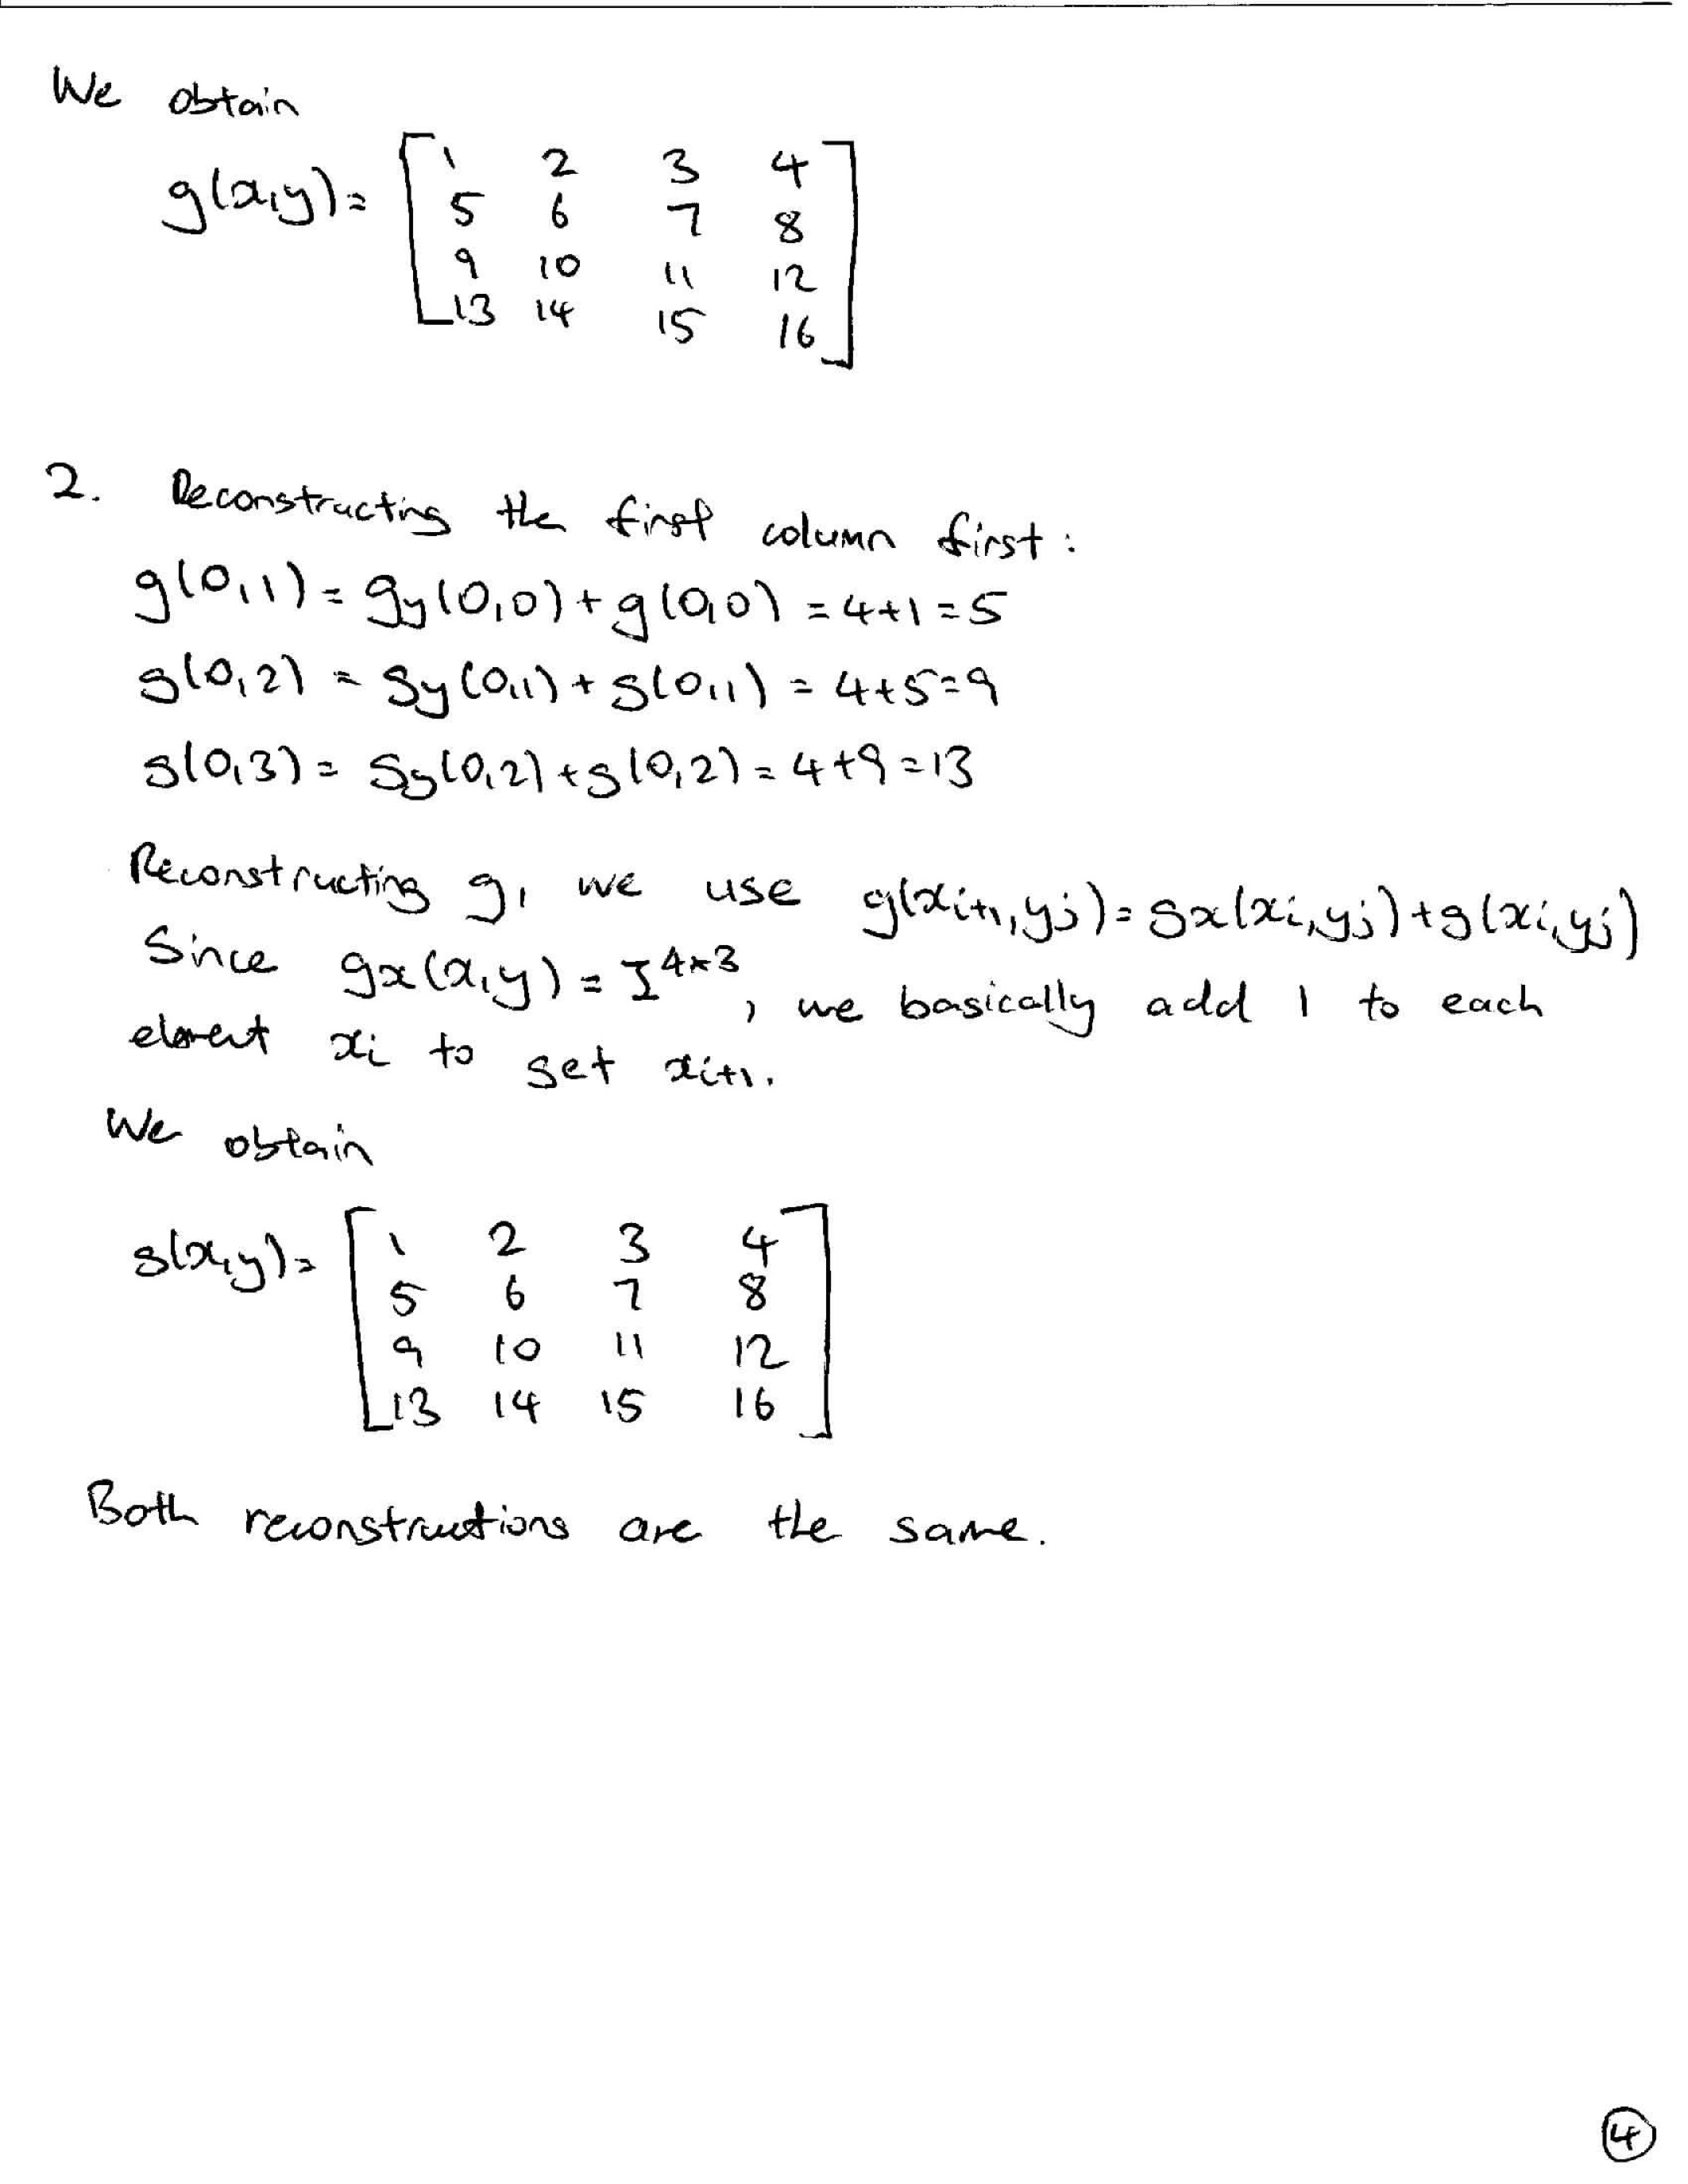 We obtain
g(x,y) = [1 2 3 4
5 6 7 8
9 10 11 12
13 14 15 16]
2. Reconstructing the first column first:
g(0,1) = gy(0,0) + g(0,0) = 4+1 = 5
g(0,2) = gy(0,1) + g(0,1) = 4+5 = 9
g(0,3) = gy(0,2) + g(0,2) = 4+9 = 13
Reconstructing g, we use g(xi+1, yj) = gx(xi, yj) + g(xi, yj)
Since gx(x,y) = I^4×3, we basically add 1 to each
element xi to get xi+1.
We obtain
g(x,y) = [1 2 3 4
5 6 7 8
9 10 11 12
13 14 15 16]
Both reconstructions are the same.
4